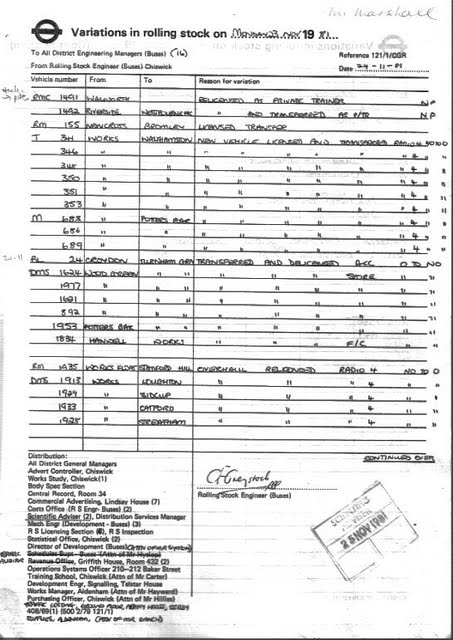 Mr Marshall
Variations in rolling stock on MONDAY 23 NOV 19 81...
To All District Engineering Managers (Buses) (16)
Reference 121/1/CGR
From Rolling Stock Engineer (Buses) Chiswick
Date 24-11-81
Vehicle number From To Reason for variation
RMC 1491 WALWORTH RELICENSED AS PRIVATE TRAINER N P
1492 RIVERSIDE " AND TRANSFERRED AS P/TR N P
RM 155 BROMLEY LICENSED TRANSFER
T 341 WORKS WALTHAMSTOW NEW VEHICLE LICENSED AND TRANSFERRED RADIO 4 NO TO O
346 " " " " " " " 4 " "
348 " " " " " " " 4 " "
350 " " " " " " " 4 " "
351 " " " " " " " 4 " "
353 " " " " " " " 4 " "
M 688 " POTTERS BAR " " " " " 4 " "
686 " " " " " " " 4 " "
689 " " " " " " " 4 " "
20-11 AL 24 CROYDON TURNHAM GRN TRANSFERRED AND DELICENSED ACC O TO NO
DMS 1624 WOOD GREEN " " " " STORE " "
1977 " " " " " " " "
1621 " " " " " " " "
892 " " " " " " " "
1953 POTTERS BAR " " " " " " "
1834 HANWELL WORKS " " " F/C " "
RM 1935 WORKS FLOAT STAMFORD HILL OVERHAUL RELICENSED RADIO 4 NO TO O
DMS 1913 WORKS LOUGHTON " " " 4 " "
1929 " SIDCUP " " " 4 " "
1933 " CATFORD " " " 4 " "
1925 " STREATHAM " " " 4 " "
CONTINUED OVER
Distribution:
All District General Managers
Advert Controller, Chiswick
Works Study, Chiswick(1)
Body Spec Section
Central Record, Room 34
Commercial Advertising, Lindsay House (7)
Costs Office (R S Engr- Buses) (2)
Scientific Adviser (2), Distribution Services Manager
Mech Engr (Development - Buses) (3)
RS Licensing Section (6), R S Inspection
Statistical Office, Chiswick (2)
Director of Development (Buses)
Schedules Supt - Buses (Attn of Mr Hyslop)
Revenue Office, Griffith House, Room 432 (2)
Operations Systems Officer 210-212 Baker Street
Training School, Chiswick (Attn of Mr Carter)
Development Engr, Signalling, Telstar House
Works Manager, Aldenham (Attn of Mr Hayward)
Purchasing Officer, Chiswick (Attn of Mr Hillies)
408/69(1) (500 2/79 121/1)
Rolling Stock Engineer (Buses)
25 NOV 1981